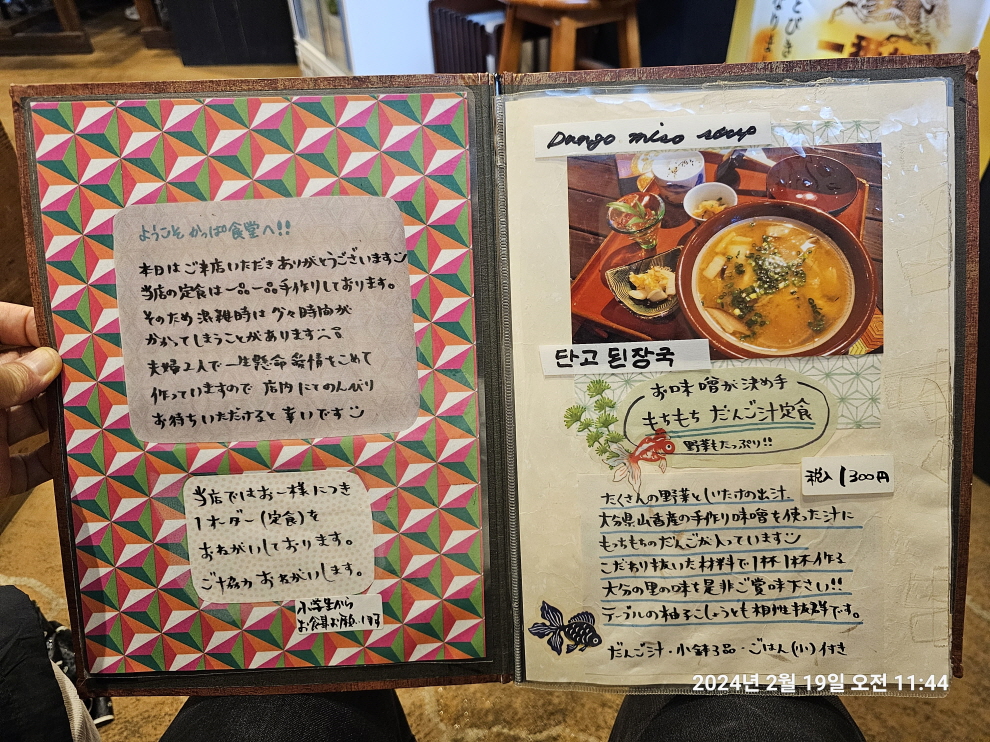 ようこそ かっぱ食堂へ!!
本日はご来店いただきありがとうございます
当店の定食は一品一品手作りしております。
そのため混雑時は少々時間が
かかってしまうことがあります
夫婦2人で一生懸命 愛情をこめて
作っていますので 店内にてのんびり
お待ちいただけると幸いです
当店ではお一様につき
1オーダー(定食)を
おねがいしております。
ご協力おねがいします。
小学生から
お食事お願い
Dango miso soup
단고 된장국
お味噌が決め手
もちもち だんご汁定食
野菜もたっぷり!!
税入 1300円
たくさんの野菜としいたけの出汁
大分県山香産の手作り味噌を使った汁に
もっちもちのだんごが入っています
こだわり抜いた材料で1杯1杯作る
大分の里の味を是非ご賞味下さい!!
テーブルの柚子こしょうとも相性抜群です。
だんご汁・小鉢3品・ごはん(小)付き
とびき
なりま
2024년 2월 19일 오전 11:44